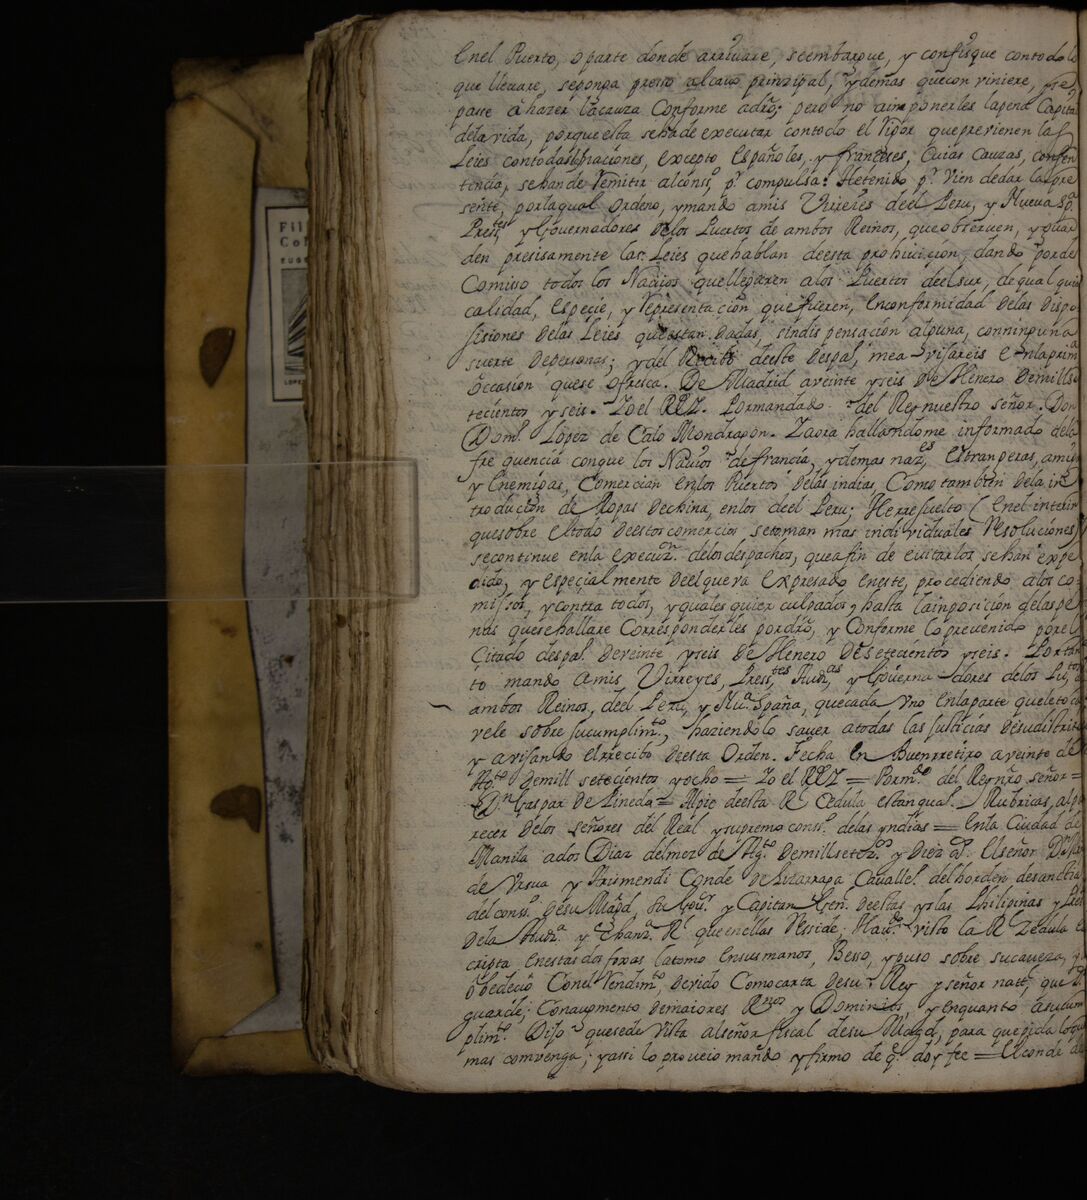 Enel Puerto, oparte donde arrivare, seembargue, y confisque contodo lo
que llevare, seponga preso alcavo prinzipal, y demas quecon viniere, pa
passe àhazer lacauza Conforme adro; pero no aimponerles lapena Capital
delavida, porqueesta sehade executar contodo el Vigor queprevienen las
Leies contodaslasnaciones, excepto Españoles, y franceses, Cuias Cauzas, consen
tencia, sehande Remitir alconso. pr. compulsa: Hetenido pr. vien dedar lapre
sente, porlaqual ordeno, ymando amis Virreies del Peru, y Nueva Spa.
Presstes. y Governadores delos Puertos de ambos Reinos, queobserven, yguar
den presisamente las Leies quehablan deesta prohivición, dando porde
Comisso todos los Navios quellegaren alos Puertos del sur, de qual quie
calidad, Especie, y representación que fueren, Enconformidad delas Dispo
sisiones delas Leies queestan dadas, sindis pensación alguna, conninguna
suerte depersonas; y del Recibo deeste despa., mea visareis Enlaprima.
occasion quese ofresca. De Madrid aveinte yseis de Henero demills
tecientos y seis. Yo el REY. Pormandado del Rey nuestro señor. Don
Domo. Lopez de Calo Mondragon. Zaora hallandome informado dela
fre quencia conque los Navios de francia, y demas nazes. Estrangeras, amig
y Enemigas, Comercian enlos Puertos delas indias, Como tambien dela in
trodución de Ropas dechina, enlos del Peru; Herresuelto (Enel interin
quesobre eltodo deestos comercios setoman mas indi viduales Resoluciones)
secontinue enla execuzn. delos despachos, queafin de evitarlos sehan expe
dido, y especialmente deel que va Expresado eneste, procediendo alos co
missos, ycontra todos, yquales quier culpados, hasta lainposición delas pe
nas quesehallare Corresponderles pordro, y Conforme lo prevenido por el
Citado despa. deveinte yseis de Henero de setecientos yseis. Portan
to mando amis Virreyes, Presstes. Audas. y Governa dores delos Puos.
ambos Reinos, deel Peru, y Nua. España, quecada Uno Enlaparte queletoca
vele sobre sucumplimto., haziendolo saver atodas lasjusticias desudistrito
y avisando elrrecito deesta Orden. Fecha En Buenrretiro aveinte de
Agto. demill setecientos yocho = Yo el REY = Pormdo. del Rey nro señor =
Dn. Gaspar de Pineda = Alpie deesta Rl Cedula estan qual. Rubricas, alpa
recer delos señores del Real ysupremo conso. delas yndias = Enla Ciudad de
Manila ados Diaz delmez de Agto. demillsetezos. y Diez as. Elseñor Dn. Mar
de Ursua y Arismendi Conde de Lizarraga Cavallo. delhorden desanctia
delconso. desu Magd, su Govr. y Capitan Gen. deestas yslas Philipinas y Pres
dela Auda. y Chanza. Rl. queenellas Resside; Havdo. visto la Rl Zedula es
cripta Enestas dos foxas latomo Ensusmanos, Beso, y puso sobre sucaveza, y
obedecio Conel Rendimto. devido Comocarta desu Rey y señor natl, que Ds
guarde; Conaumento demaiores Rnos y Dominios, y enquanto asucum
plimto. Dijo quesede Vista alseñor fiscal desu Magd, para quepida loque
mas comvenga; yassi lo proveio mando yfirmo de q. doy fee = Elconde de